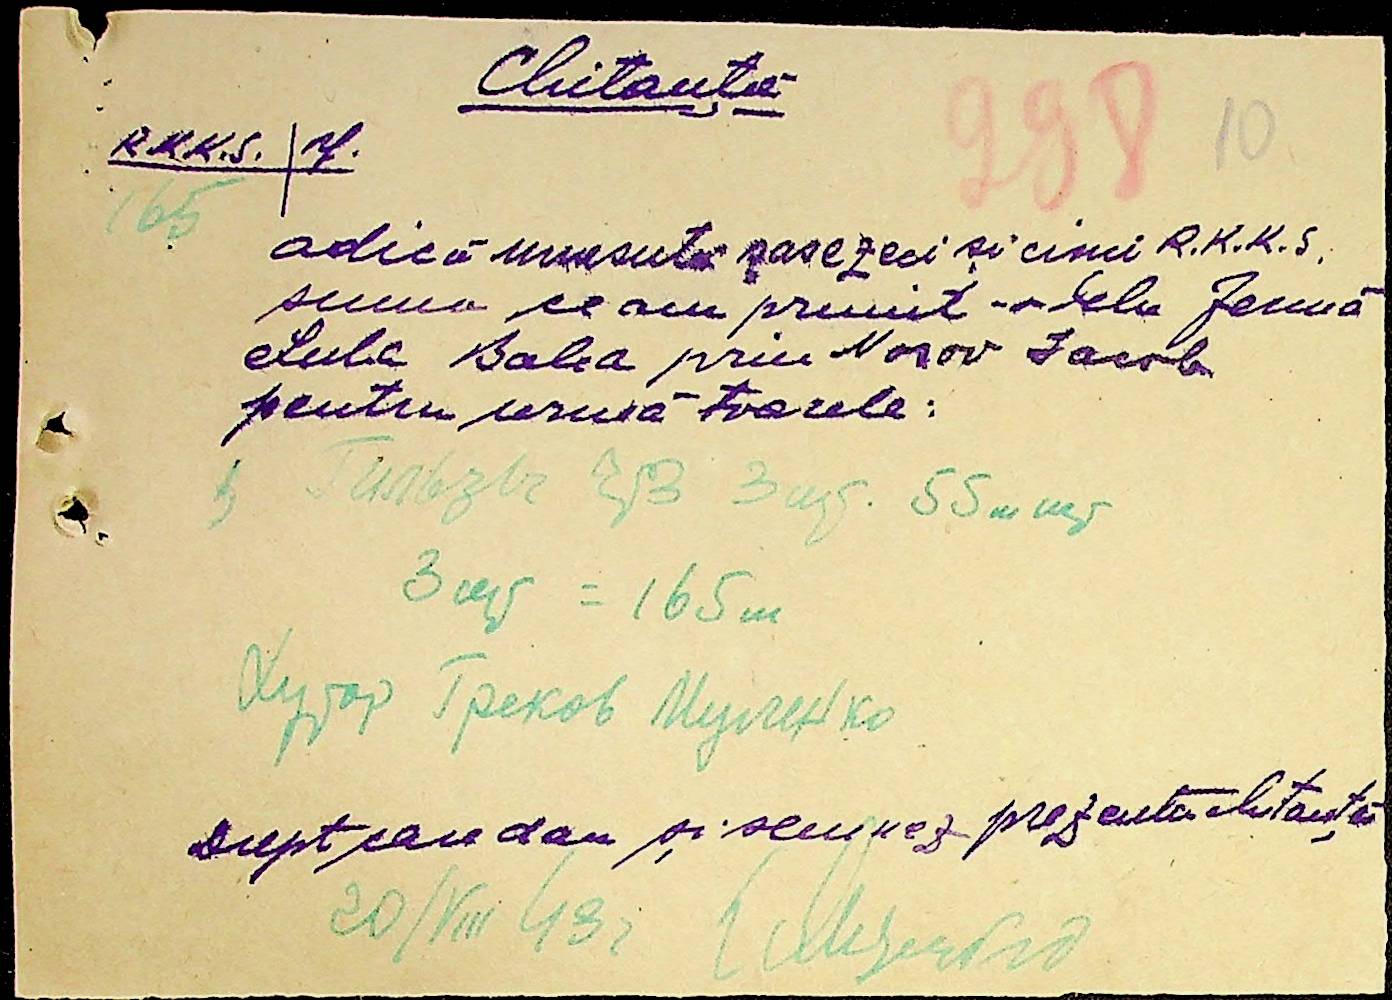 Chitanță
298 10
R.K.K.S. | Y.
165
adică unasuta șasezeci și cinci R.K.K.S.
suma ce am primit dela Fermă
Lula Balca prin Nosov Iacob
pentru următoarele:
Гильзы ЧТЗ 3 шт. 55 м шт
3 шт = 165 м
Хутор Греков Мищенко
Drept care dau și semnez prezenta chitanță
20/VIII 43 г